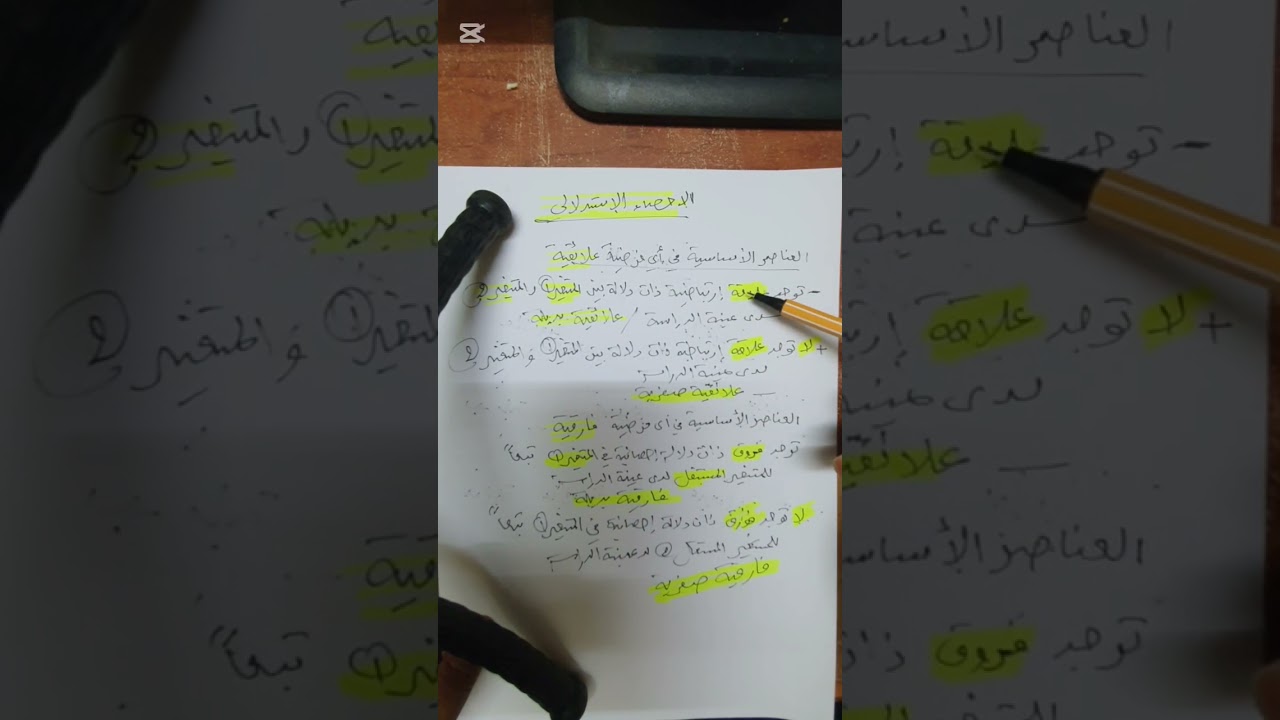 الاحصاء الإستدلالي
العناصر الأساسية في أي فرضية علائقية
- توجد علاقة إرتباطية ذات دلالة بين المتغير ① والمتغير ②
لدى عينة الدراسة / علائقية بديلة
+ لا توجد علاقة إرتباطية ذات دلالة بين المتغير ① و المتغير ②
لدى عينة الدراسة
– علائقية صفرية
العناصر الأساسية في أي فرضية فارقية
توجد فروق ذات دلالة إحصائية في المتغير ① تبعاً
للمتغير المستقل لدى عينة الدراسة
فارقية بديلة
لا توجد فروق ذات دلالة إحصائية في المتغير ① تبعاً
للمتغير المستقل ② لدى عينة الدراسة
فارقية صفرية